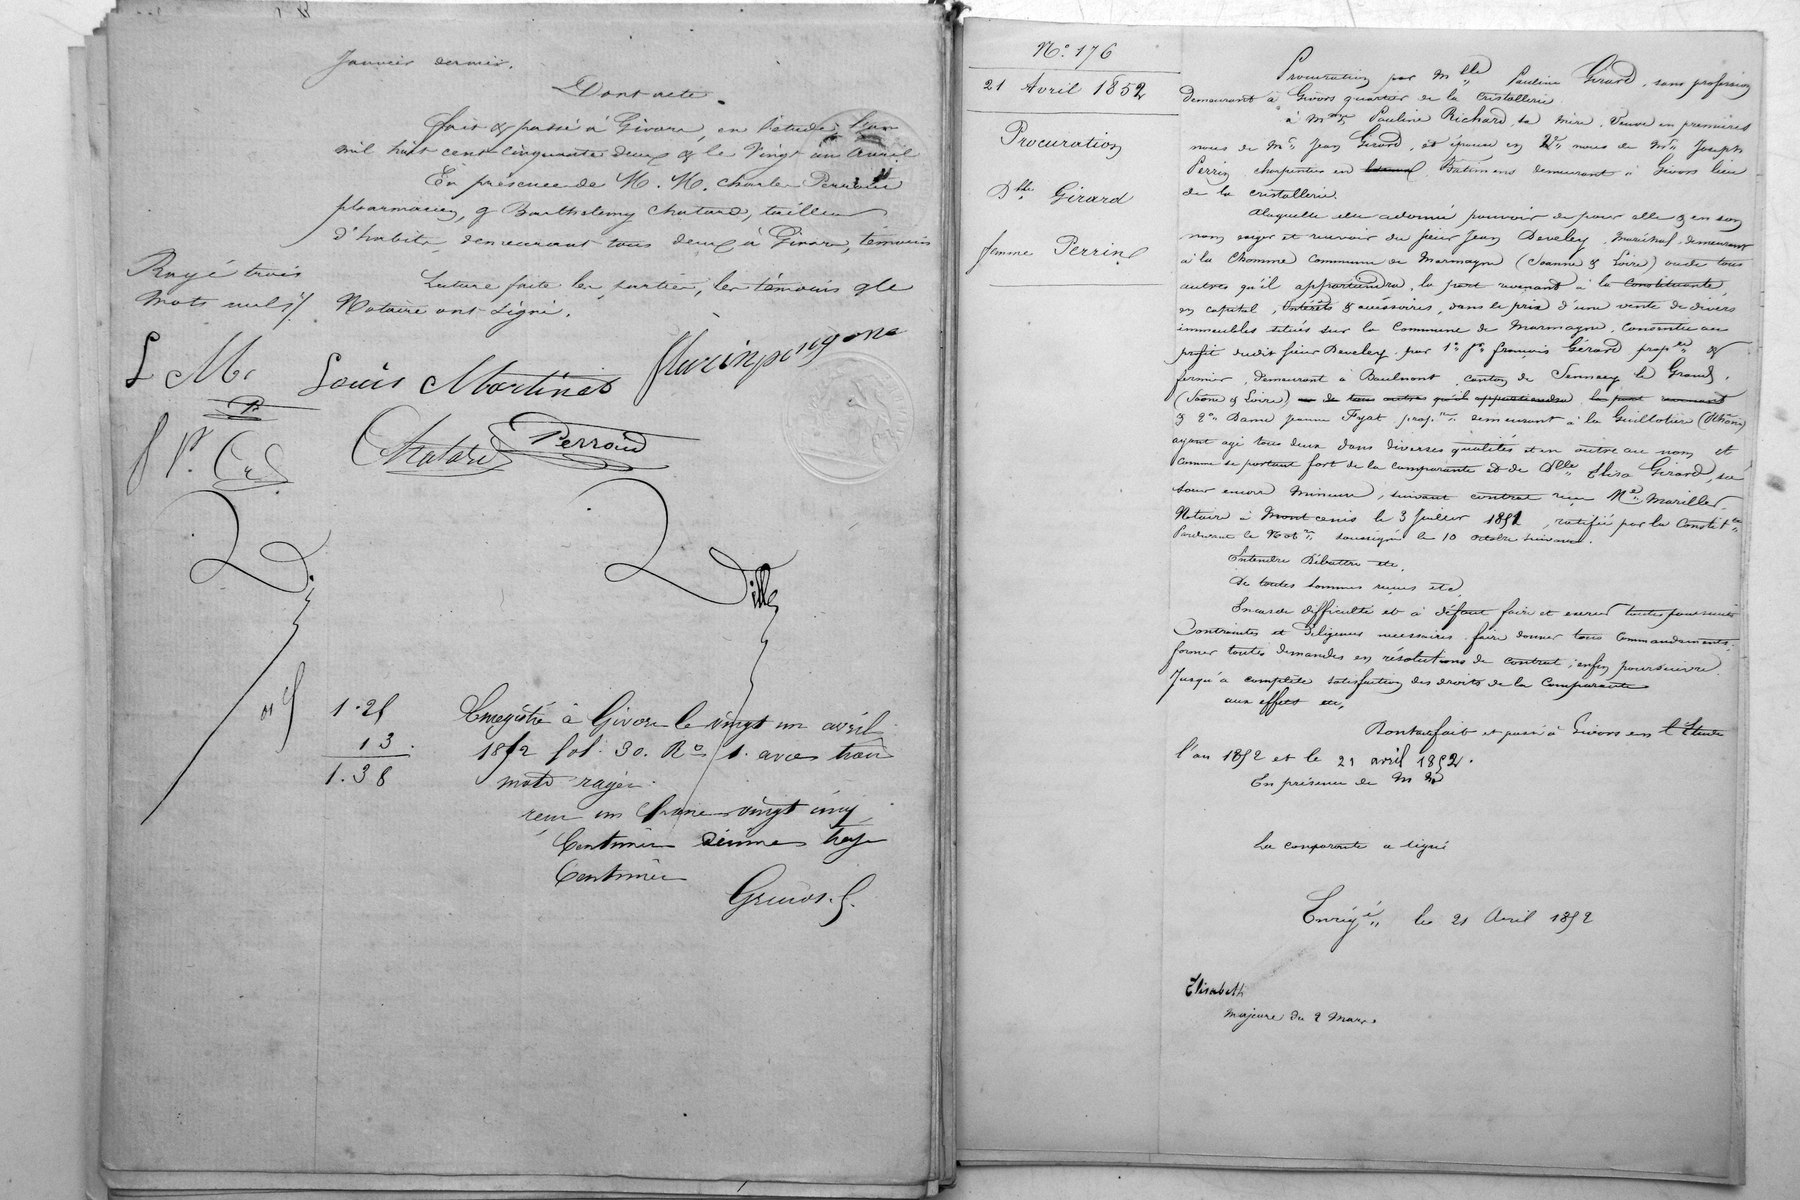 Janvier dernier.
Dont acte.
fait & passé à Givors, en l'étude, l'an
mil huit cent cinquante deux & le vingt un avril
En présence de M. M. Charles Perroud
pharmacien, & Barthélemy Chatard, tailleur
d'habits, demeurant tous deux à Givors, témoins
Lecture faite les parties, les témoins & le
Notaire ont signé.
Rayé trois
mots nuls
L M
Louis Martinet
P.
Chatard
Perroud
Dille
1.25
13.
1.38
Enregistré à Givors le vingt un avril
1852 fol. 30. Ro 1. avec trois
mots rayés.
reçu un franc vingt cinq
Centimes décime treize
Centimes
No 176
21 Avril 1852
Procuration
Dlle Girard
femme Perrin
Procuration par Mlle Pauline Girard, sans profession
demeurant à Givors quartier de la cristallerie
à Pauline Richard sa mère, veuve en premières
noces de Mr Jean Girard, et épouse en 2es noces de Mr Joseph
Perrin charpentier en Bâtimens demeurant à Givors lieu
de la cristallerie.
A laquelle elle a donné pouvoir de pour elle & en son
nom exiger et recevoir du sieur Jean Develey, Maréchal, demeurant
à la Chomme commune de Marmagne (Saone & Loire) ou de tous
autres qu'il appartiendra, la part revenant à la Constituante,
en capital, intérêts & accéssoires, dans le prix d'une vente de divers
immeubles situés sur la Commune de Marmagne, consentie au
profit dudit sieur Develey par 1o françois Gérard propre &
fermier, demeurant à canton de Sennecey le Grand,
(Saône & Loire) ou de tous autres qu'il appartiendra la part revenant
& 2o Dame Jeanne Fyot prop. demeurant à la Guillotière (Rhône)
ayant agi tous deux dans diverses qualités et en outre au nom et
comme se portant fort de la comparante et de Dlle Eliza Girard, sa
soeur encore Mineure, suivant contrat reçu Me Mariller
Notaire à Montcenis le 3 Juillet 1851, ratifié par la Constite
Pardevant le Notre soussigné le 10 octobre suivant.
Entendre Débattre etc.
De toutes sommes reçues etc.
En cas de difficulté et à défaut faire et exercer toutes poursuites
Contraintes et Diligences nécessaires, faire donner tous Commandements,
former toutes demandes en résolutions de contrat; enfin poursuivre
Jusqu'à complète satisfaction des droits de la Comparante
aux effets etc,
Dont acte fait et passé à Givors en l'Etude
l'an 1852 et le 21 avril 1852.
En présence de M M
La comparante a signé
Enregé le 21 Avril 1852
Elisabeth
Majeure du 2 Mars.